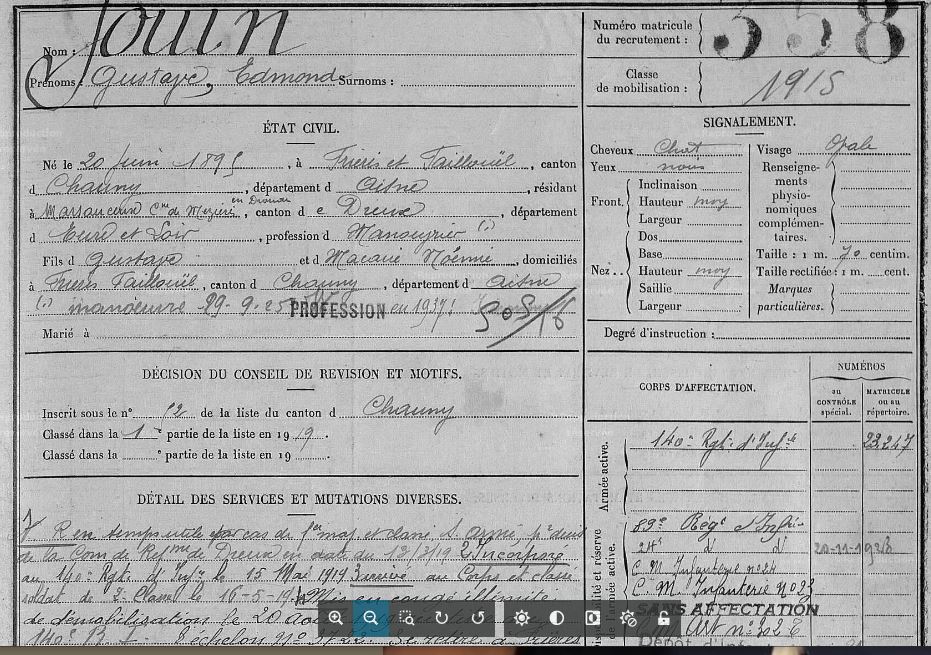 Jouin
Nom :
Prénoms : Gustave, Edmond Surnoms :
ÉTAT CIVIL.
Né le 20 juin 1895, à Frieres Faillouël, canton
d Chauny, département d Aisne, résidant
en Drouais
à Marsauceux Cne de Mezières, canton d e Dreux, département
d Eure et Loir, profession d Manouvrier (1)
Fils d Gustave et d Macaire Noémie, domiciliés
à Frieres Faillouël, canton d Chauny, département d Aisne
(1) manoeuvre 29-9-25 PROFESSION en 1937:
Marié à
DÉCISION DU CONSEIL DE REVISION ET MOTIFS.
Inscrit sous le n° 12 de la liste du canton d Chauny
Classé dans la 1e partie de la liste en 1919.
Classé dans la e partie de la liste en 19 .
DÉTAIL DES SERVICES ET MUTATIONS DIVERSES.
en temps utile cas de et dans l'armée
de la Com de Ref de Dreux en date du 12/3/19 Incorporé
au 140e Rgt d'Inf le 15 Mai 1919 arrivé au Corps et classé
soldat de 2e Classe le 16-5-19 Mis en congé illimité
de démobilisation le 20
140e échelon n° Se retire à Frières
Numéro matricule
du recrutement : 358
Classe
de mobilisation : 1915
SIGNALEMENT.
Cheveux Chat
Yeux noirs
Front.
Inclinaison
Hauteur moy
Largeur
Nez..
Dos
Base
Hauteur moy
Saillie
Largeur
Visage Ovale
Renseigne-
ments
physio-
nomiques
complémen-
taires.
Taille : 1 m. 70 centim.
Taille rectifiée : 1 m. cent.
Marques
particulières.
Degré d'instruction :
CORPS D'AFFECTATION.
NUMÉROS
au
CONTRÔLE
spécial.
MATRICULE
ou au
répertoire.
Armée active.
140e Rgt. d'Inf. 23.247
et réserve
de l'armée active.
89e Régt d'Infrie
24e d° d° 20-11-1938
C. M Infanterie n° 24
C. M. Infanterie N° 23
SANS AFFECTATION
Art n° 302
Dépôt d'